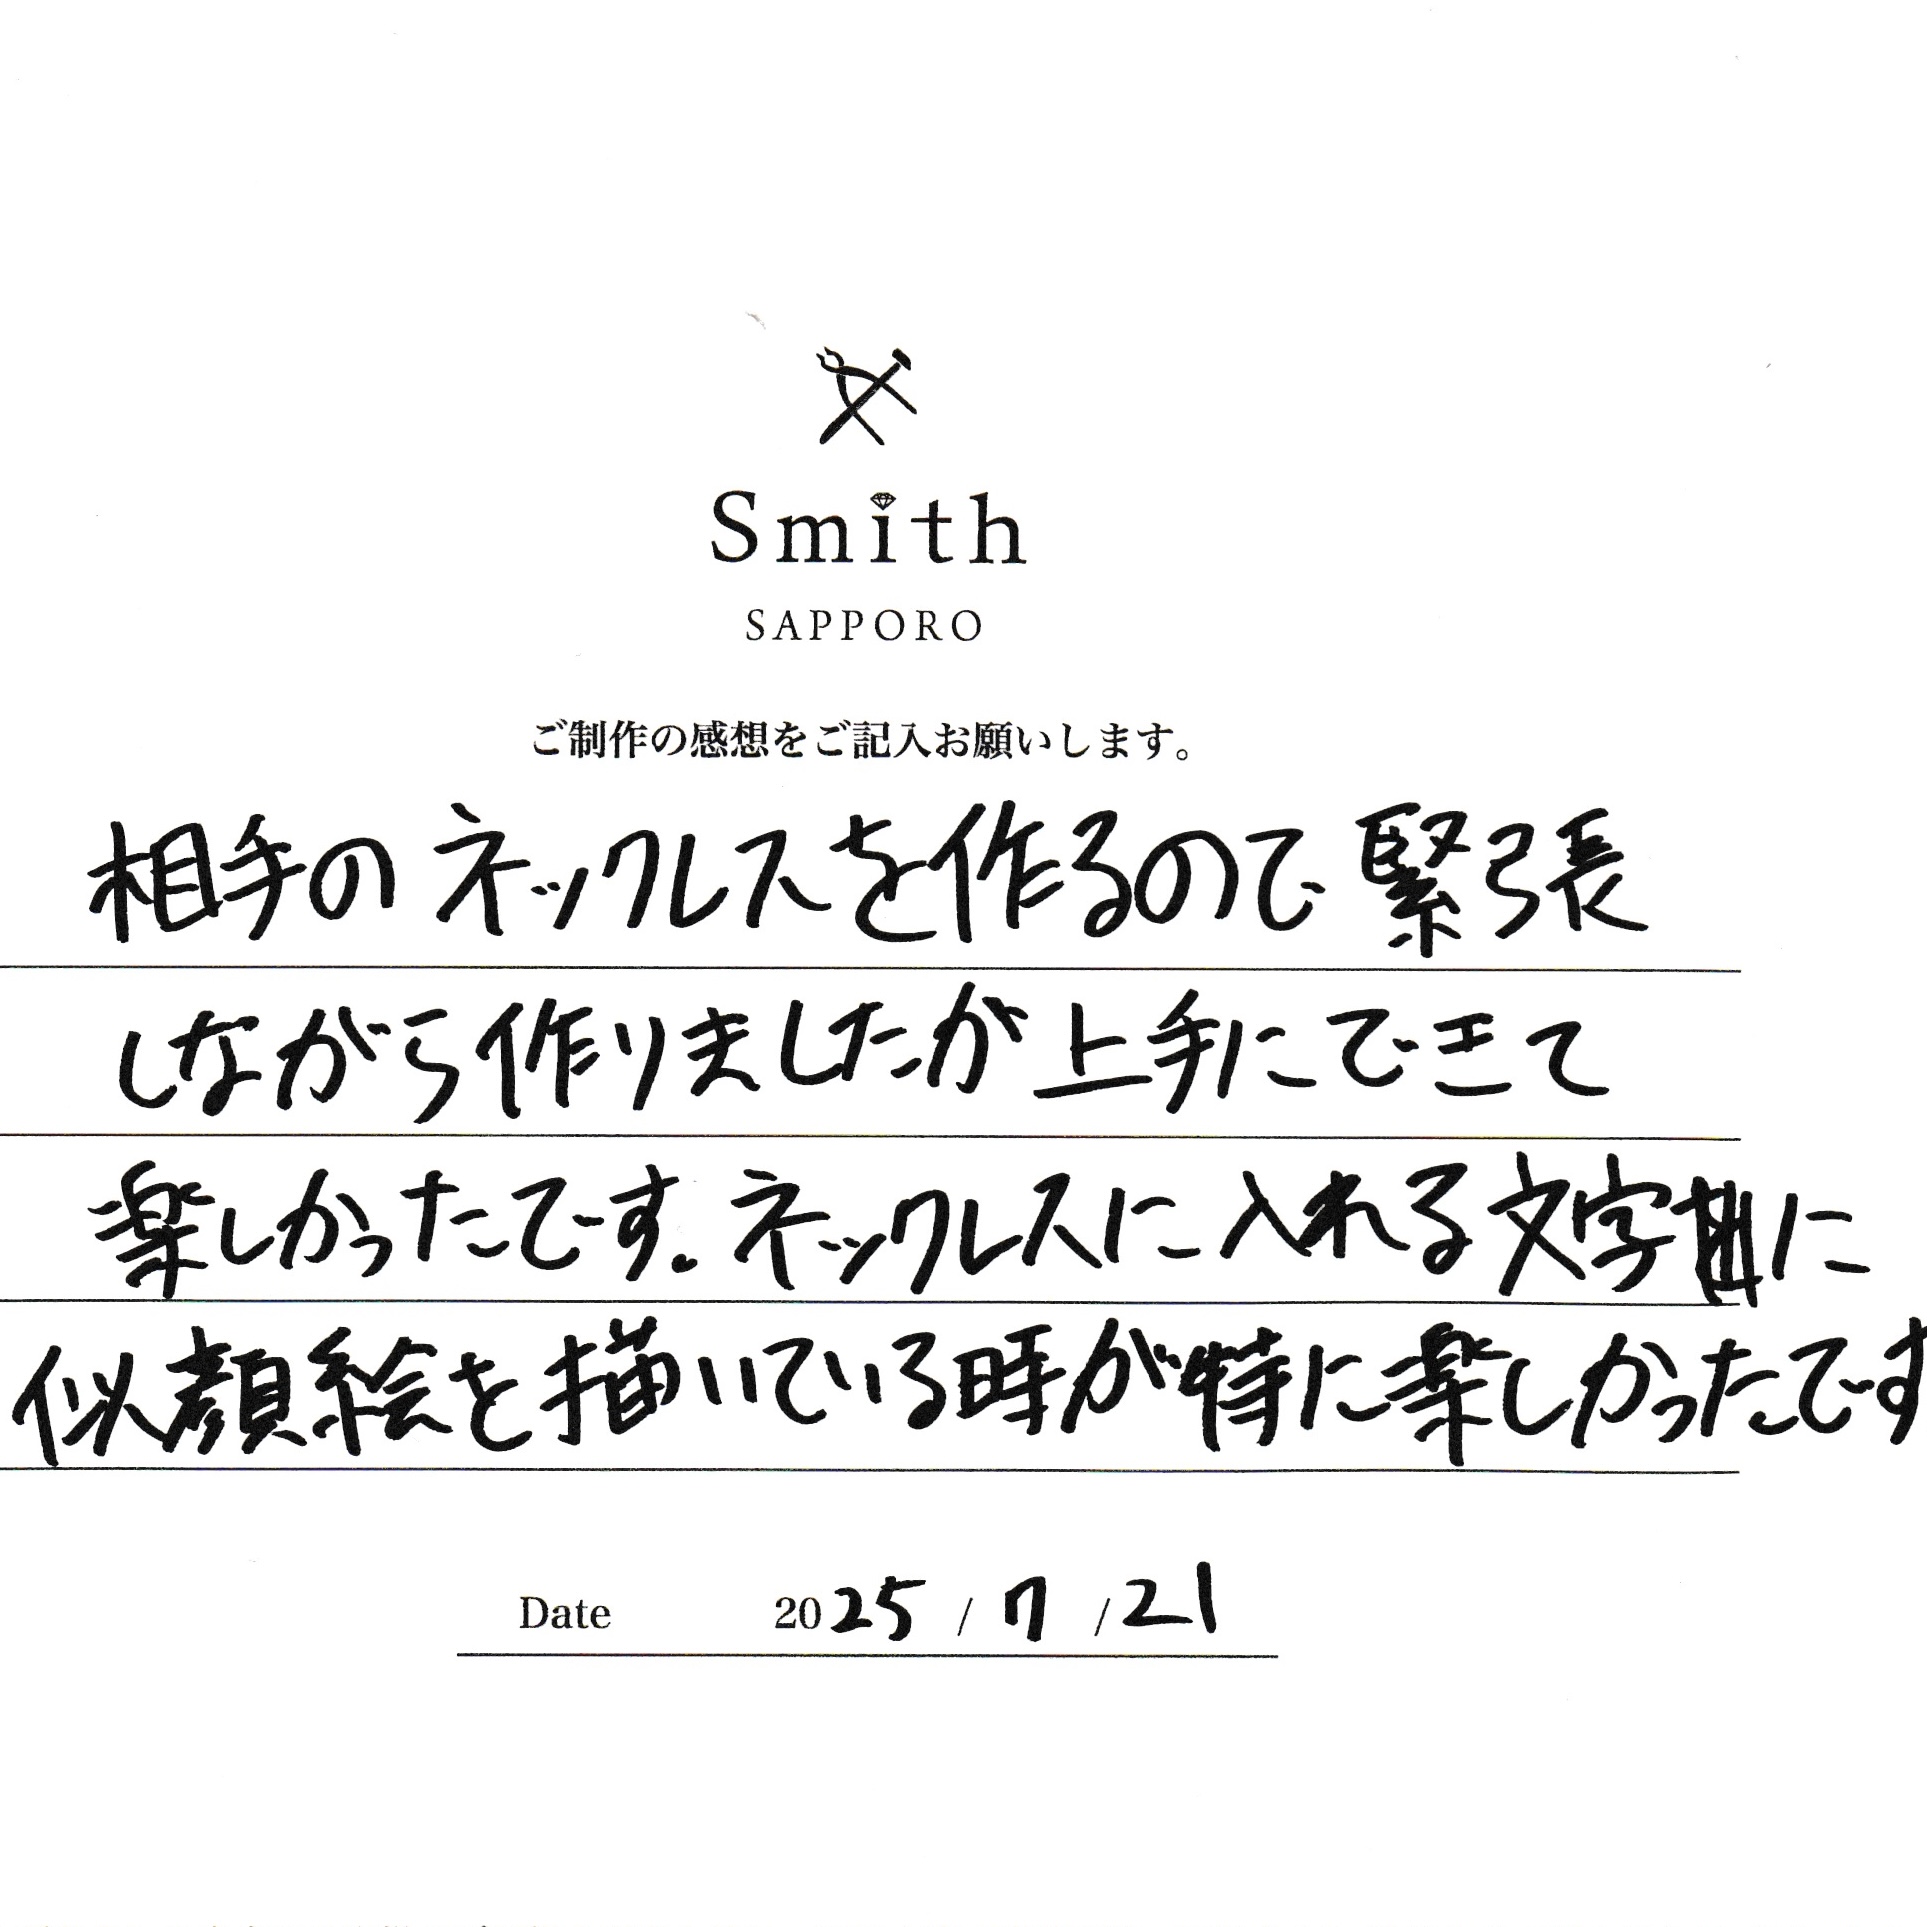 Smith
SAPPORO
ご制作の感想をご記入お願いします。
相手のネックレスを作るので緊張
しながら作りましたが上手にできて
楽しかったです。ネックレスに入れる文字に
似顔絵を描いている時が特に楽しかったです
Date 2025 / 7 / 21